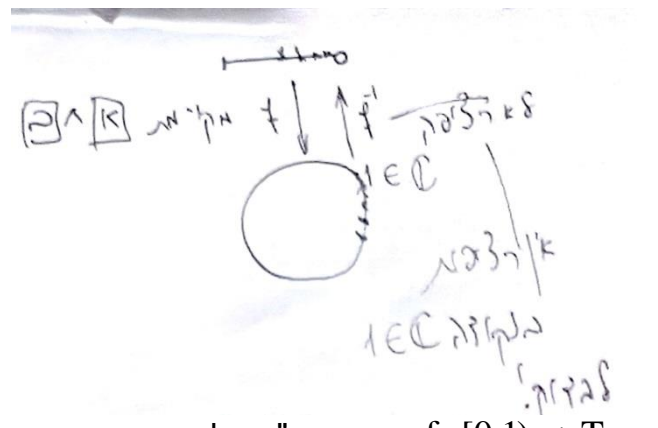 f מקיימת [א] ∧ [ב]
f⁻¹ לא רציפה
1 ∈ ℂ
אין רציפות
בנקודה 1 ∈ ℂ
לבדוק!
f: [0,1) → T